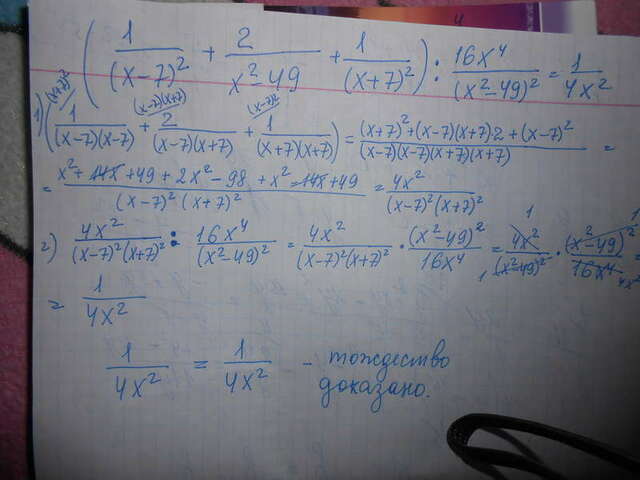 ( 1/(x-7)² + 2/x²-49 + 1/(x+7)² ) : 16x⁴/(x²-49)² = 1/4x²
1) ( 1/(x-7)(x-7) (x+7)² + 2/(x-7)(x+7) (x-7)(x+7) + 1/(x+7)(x+7) (x-7)² ) = (x+7)²+(x-7)(x+7)2+(x-7)²/(x-7)(x-7)(x+7)(x+7) =
= x²+14x+49+2x²-98+x²-14x+49/(x-7)²(x+7)² = 4x²/(x-7)²(x+7)²
2) 4x²/(x-7)²(x+7)² : 16x⁴/(x²-49)² = 4x²/(x-7)²(x+7)² · (x²-49)²/16x⁴ = 4x² 1/(x²-49)² 1 · (x²-49)² 1/16x⁴ 4x² =
= 1/4x²
1/4x² = 1/4x² - тождество
доказано.